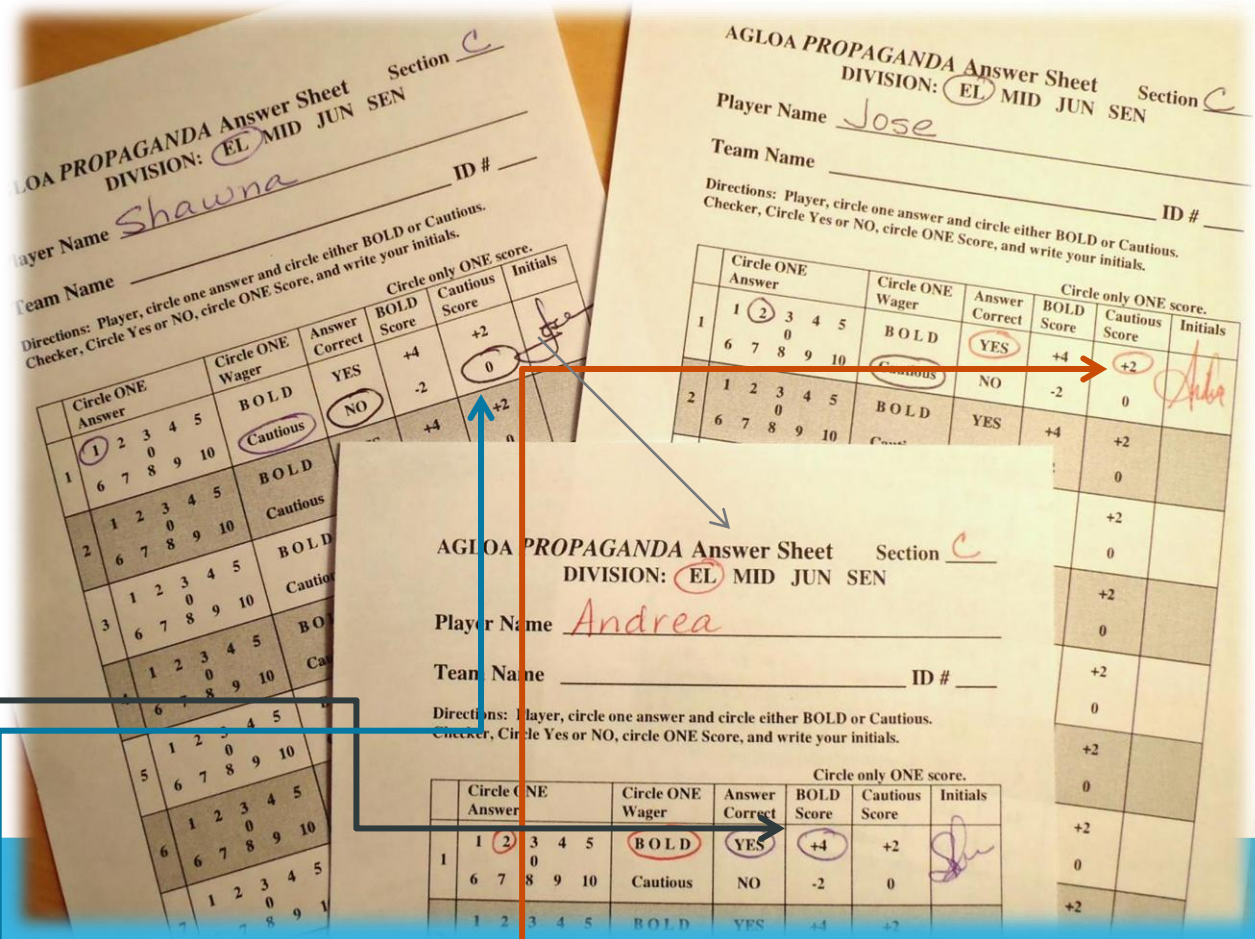 LOA PROPAGANDA Answer Sheet Section C
DIVISION: EL MID JUN SEN
layer Name Shawna
Team Name ID #
Directions: Player, circle one answer and circle either BOLD or Cautious.
Checker, Circle Yes or NO, circle ONE Score, and write your initials.
Circle only ONE score.
Circle ONE Answer Circle ONE Wager Answer Correct BOLD Score Cautious Score Initials
1 1 2 3 4 5 BOLD YES +4 +2
0
6 7 8 9 10 Cautious NO -2 0
2 1 2 3 4 5 BOLD +4 +2
0
6 7 8 9 10 Cautious 0
3 1 2 3 4 5 BOLD
0
6 7 8 9 10 Cautio
1 2 3 4 5 BO
0
6 7 8 9 10 Ca
5 1 2 3 4 5
0
6 7 8 9 10
6 1 2 3 4 5
0
6 7 8 9 10
1 2 3 4 5
0
8 9 1
AGLOA PROPAGANDA Answer Sheet Section C
DIVISION: EL MID JUN SEN
Player Name Jose
Team Name ID #
Directions: Player, circle one answer and circle either BOLD or Cautious.
Checker, Circle Yes or NO, circle ONE Score, and write your initials.
Circle only ONE score.
Circle ONE Answer Circle ONE Wager Answer Correct BOLD Score Cautious Score Initials
1 1 2 3 4 5 BOLD YES +4 +2
0
6 7 8 9 10 Cautious NO -2 0
2 1 2 3 4 5 BOLD YES +4 +2
0
6 7 8 9 10 0
+2
0
+2
0
+2
0
+2
0
+2
0
+2
AGLOA PROPAGANDA Answer Sheet Section C
DIVISION: EL MID JUN SEN
Player Name Andrea
Team Name ID #
Directions: Player, circle one answer and circle either BOLD or Cautious.
Checker, Circle Yes or NO, circle ONE Score, and write your initials.
Circle only ONE score.
Circle ONE Answer Circle ONE Wager Answer Correct BOLD Score Cautious Score Initials
1 1 2 3 4 5 BOLD YES +4 +2
0
6 7 8 9 10 Cautious NO -2 0
1 2 3 4 5 BOLD YES +4 +2